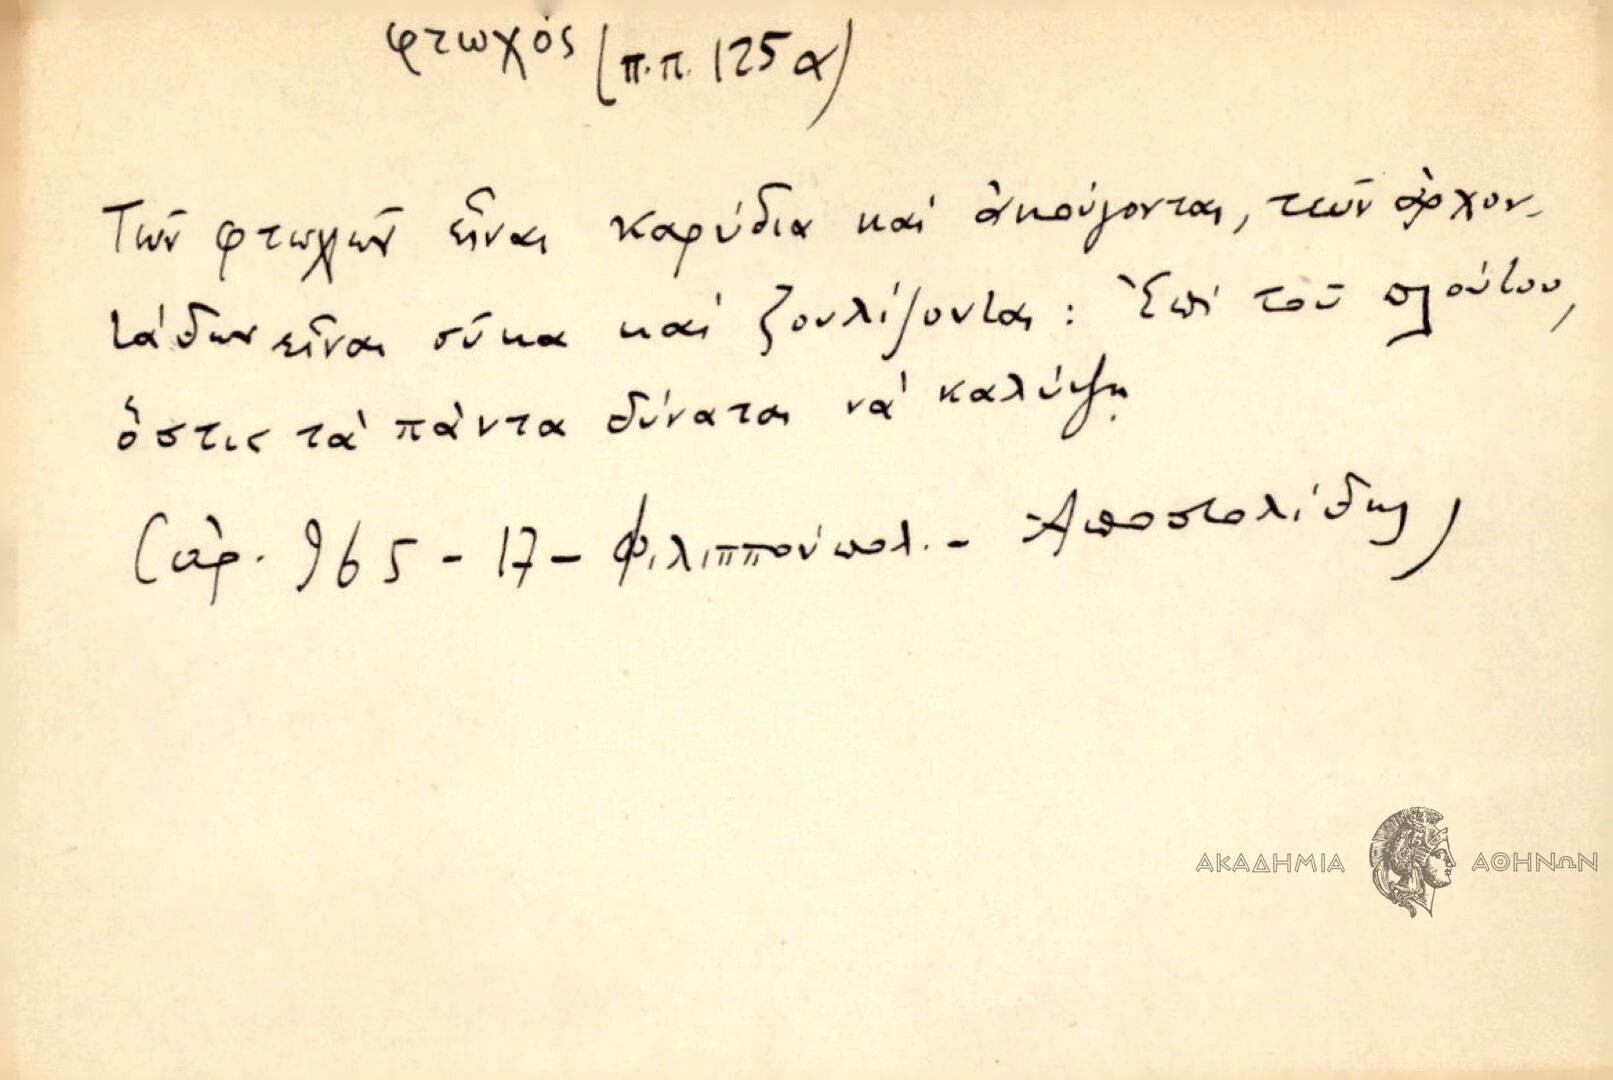 φτωχός (π.π. 125α)
Τῶν φτωχῶν εἶναι καρύδια καὶ ἀκούγονται, τῶν ἀρχον-
τάδων εἶναι σῦκα καὶ ζουλίζονται: Ἐπὶ τοῦ πλούτου,
ὅστις τὰ πάντα δύναται νὰ καλύψῃ
(ἀρ. 965 - 17 - Φιλιππούπολ. - Ἀποστολίδης)
ΑΚΑΔΗΜΙΑ ΑΘΗΝΩΝ